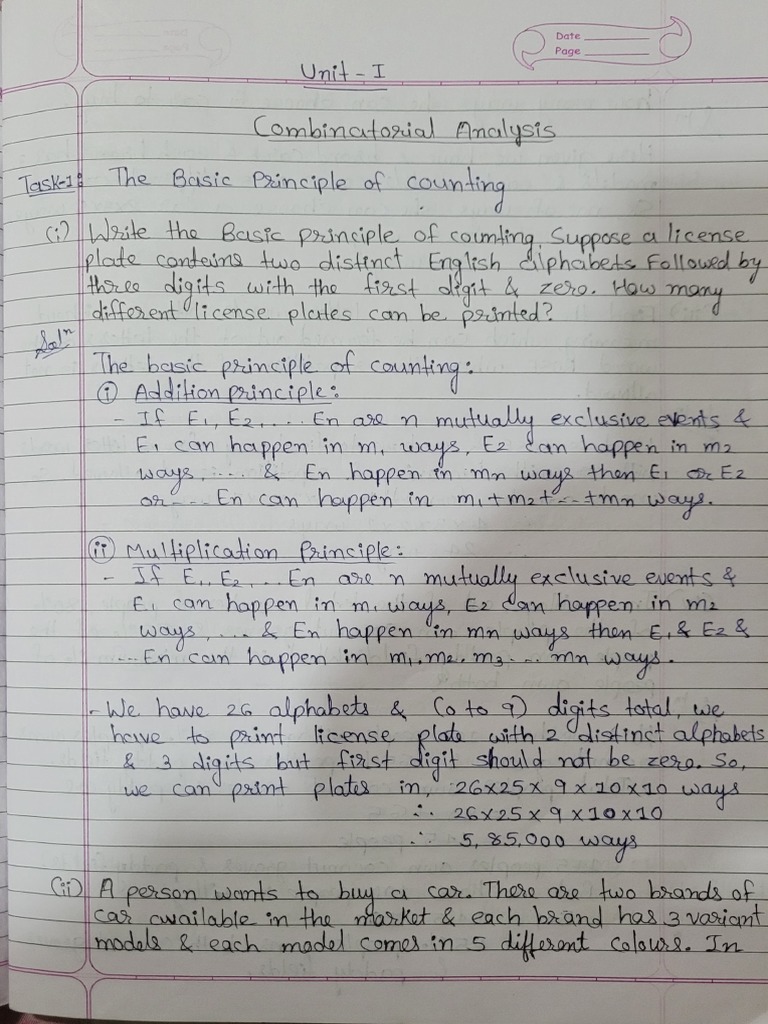 Date
Page
Unit - I
Combinatorial Analysis
Task-1: The Basic Principle of counting
(i) Write the Basic principle of counting. Suppose a license
plate contains two distinct English alphabets followed by
three digits with the first digit & zero. How many
different license plates can be printed?
Solⁿ
The basic principle of counting:
(i) Addition principle:
- If E1, E2, ... En are n mutually exclusive events &
E1 can happen in m1 ways, E2 can happen in m2
ways, ... & En happen in mn ways then E1 or E2
or --- En can happen in m1+m2+--+mn ways.
(ii) Multiplication Principle:
- If E1, E2, ... En are n mutually exclusive events &
E1 can happen in m1 ways, E2 can happen in m2
ways, ... & En happen in mn ways then E1 & E2 &
... En can happen in m1.m2.m3.... mn ways.
- We have 26 alphabets & (0 to 9) digits total, we
have to print license plate with 2 distinct alphabets
& 3 digits but first digit should not be zero. So,
we can print plates in, 26x25x9x10x10 ways
∴ 26x25x9x10x10
∴ 5,85,000 ways
(ii) A person wants to buy a car. There are two brands of
car available in the market & each brand has 3 variant
models & each model comes in 5 different colours. In